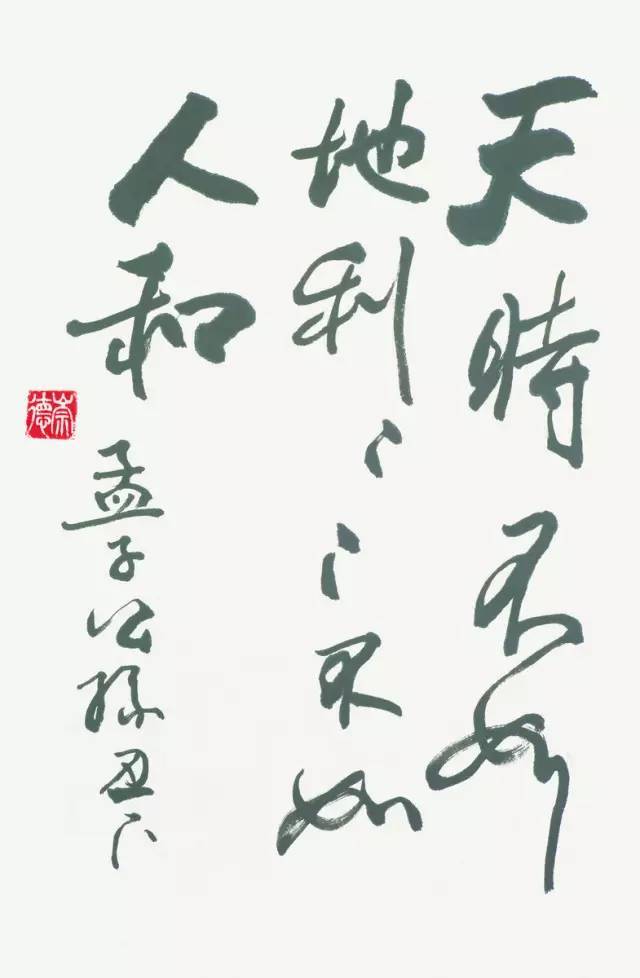 天時不如
地利〻〻不如
人和
孟子公孫丑下
崇德